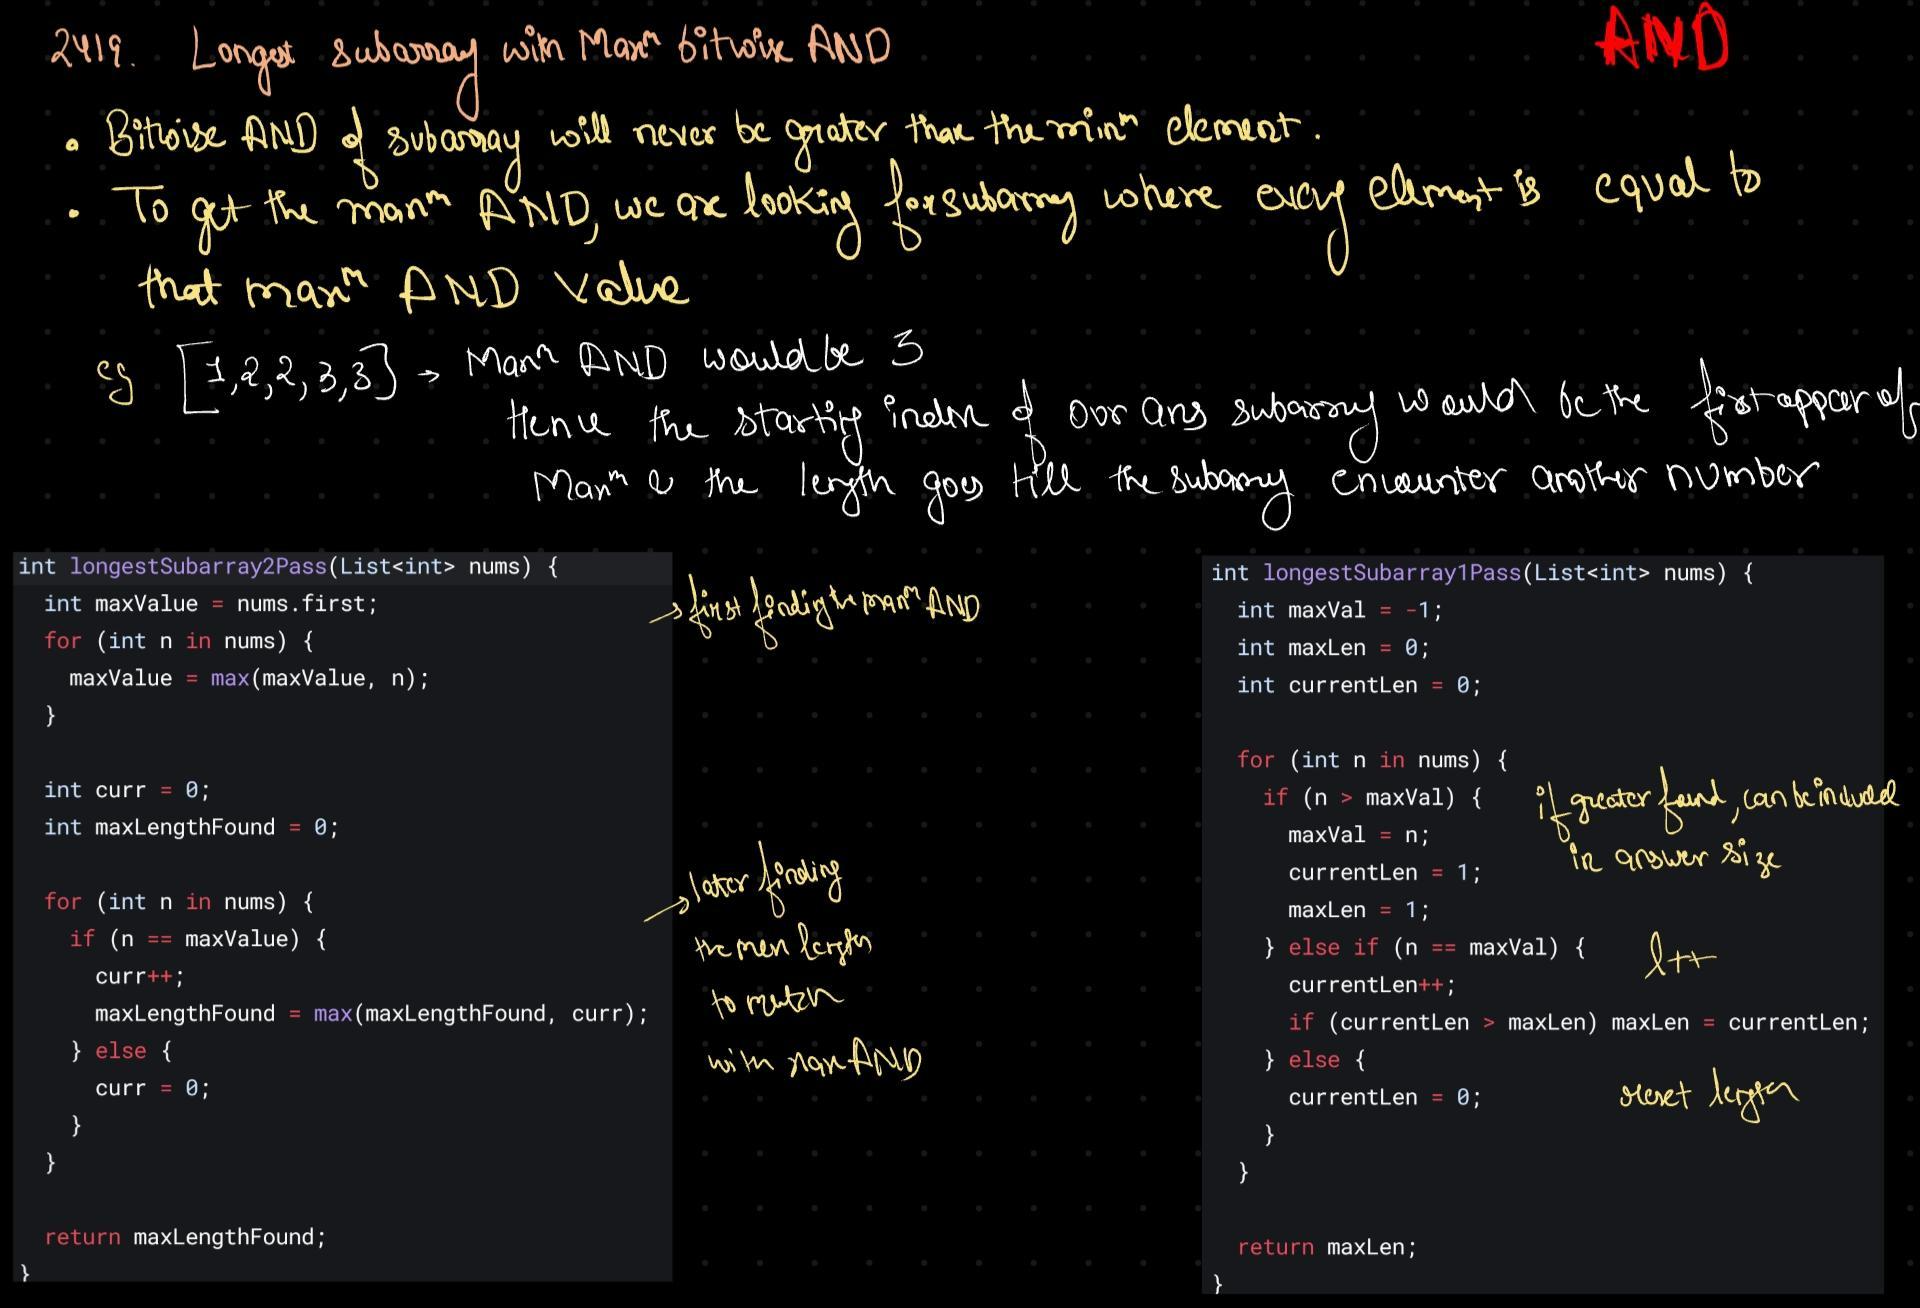 2419. Longest subarray with Maxm bitwise AND
AND
• Bitwise AND of subarray will never be greater than the minm element.
• To get the maxm AND, we are looking for subarray where every element is equal to
that maxm AND value
eg [1,2,2,3,3] → Maxm AND would be 3
Hence the starting index of our ans subarray would be the first appear of
Maxm & the length goes till the subarray encounter another number
int longestSubarray2Pass(List<int> nums) {
int maxValue = nums.first;
for (int n in nums) {
maxValue = max(maxValue, n);
}
int curr = 0;
int maxLengthFound = 0;
for (int n in nums) {
if (n == maxValue) {
curr++;
maxLengthFound = max(maxLengthFound, curr);
} else {
curr = 0;
}
}
return maxLengthFound;
}
→ first finding the maxm AND
→ later finding
the max length
to match
with max AND
int longestSubarray1Pass(List<int> nums) {
int maxVal = -1;
int maxLen = 0;
int currentLen = 0;
for (int n in nums) {
if (n > maxVal) {
maxVal = n;
currentLen = 1;
maxLen = 1;
} else if (n == maxVal) {
currentLen++;
if (currentLen > maxLen) maxLen = currentLen;
} else {
currentLen = 0;
}
}
return maxLen;
}
if greater found, can be included
in answer size
l++
reset length